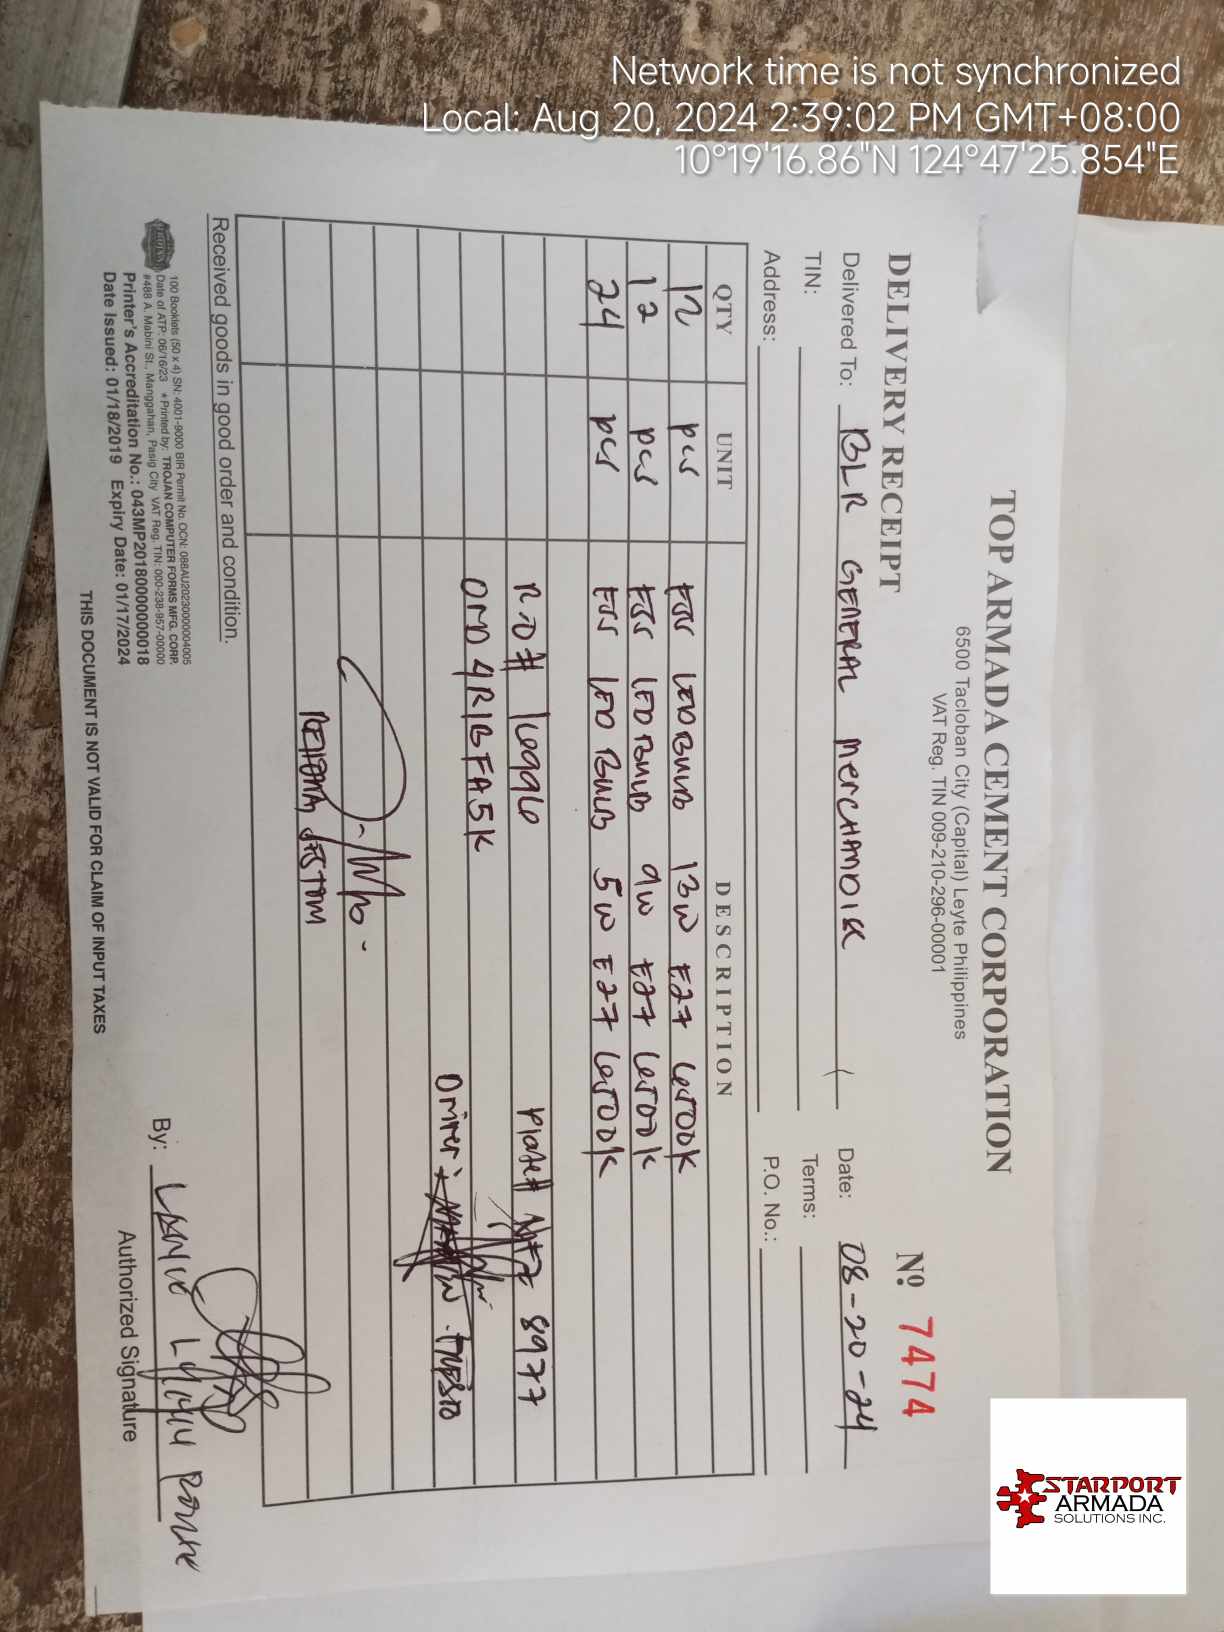 Network time is not synchronized
Local: Aug 20, 2024 2:39:02 PM GMT+08:00
10°19'16.86"N 124°47'25.854"E
TOP ARMADA CEMENT CORPORATION
6500 Tacloban City (Capital) Leyte Philippines
VAT Reg. TIN 009-210-296-00001
DELIVERY RECEIPT
Nº 7474
Delivered To: BLR GENERAL MERCHANDIS Date: 08-20-24
TIN: Terms:
Address: P.O. No.:
QTY UNIT DESCRIPTION
12 pcs LED BULB 13W E27 6500K
12 pcs LED BULB 9W E27 6500K
24 pcs LED BULB 5W E27 6500K
Plate# 8977
OMD4R1BFA5K
Driver:
Received goods in good order and condition.
100 Booklets (50 x 4) SN: 4001-9000 BIR Permit No. OCN: 088AU20230000004005
Date of ATP: 06/16/23 *Printed by: TROJAN COMPUTER FORMS MFG. CORP.
#488 A. Mabini St., Manggahan, Pasig City VAT Reg. TIN: 000-238-957-00000
Printer's Accreditation No.: 043MP20180000000018
Date Issued: 01/18/2019 Expiry Date: 01/17/2024
THIS DOCUMENT IS NOT VALID FOR CLAIM OF INPUT TAXES
By:
Authorized Signature
STARPORT
ARMADA
SOLUTIONS INC.